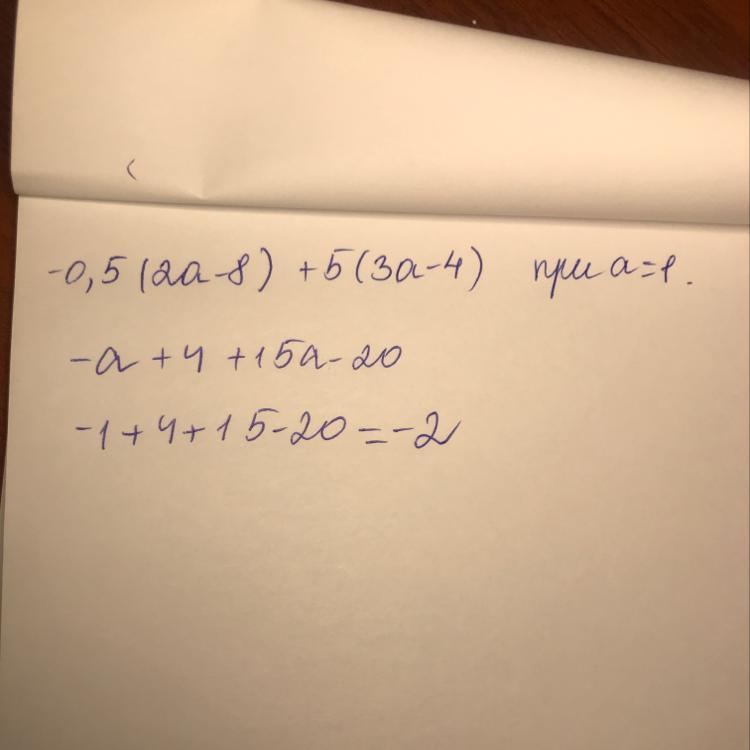 -0,5(2a-8) +5(3a-4) при a=1.
-a+4+15a-20
-1+4+15-20=-2